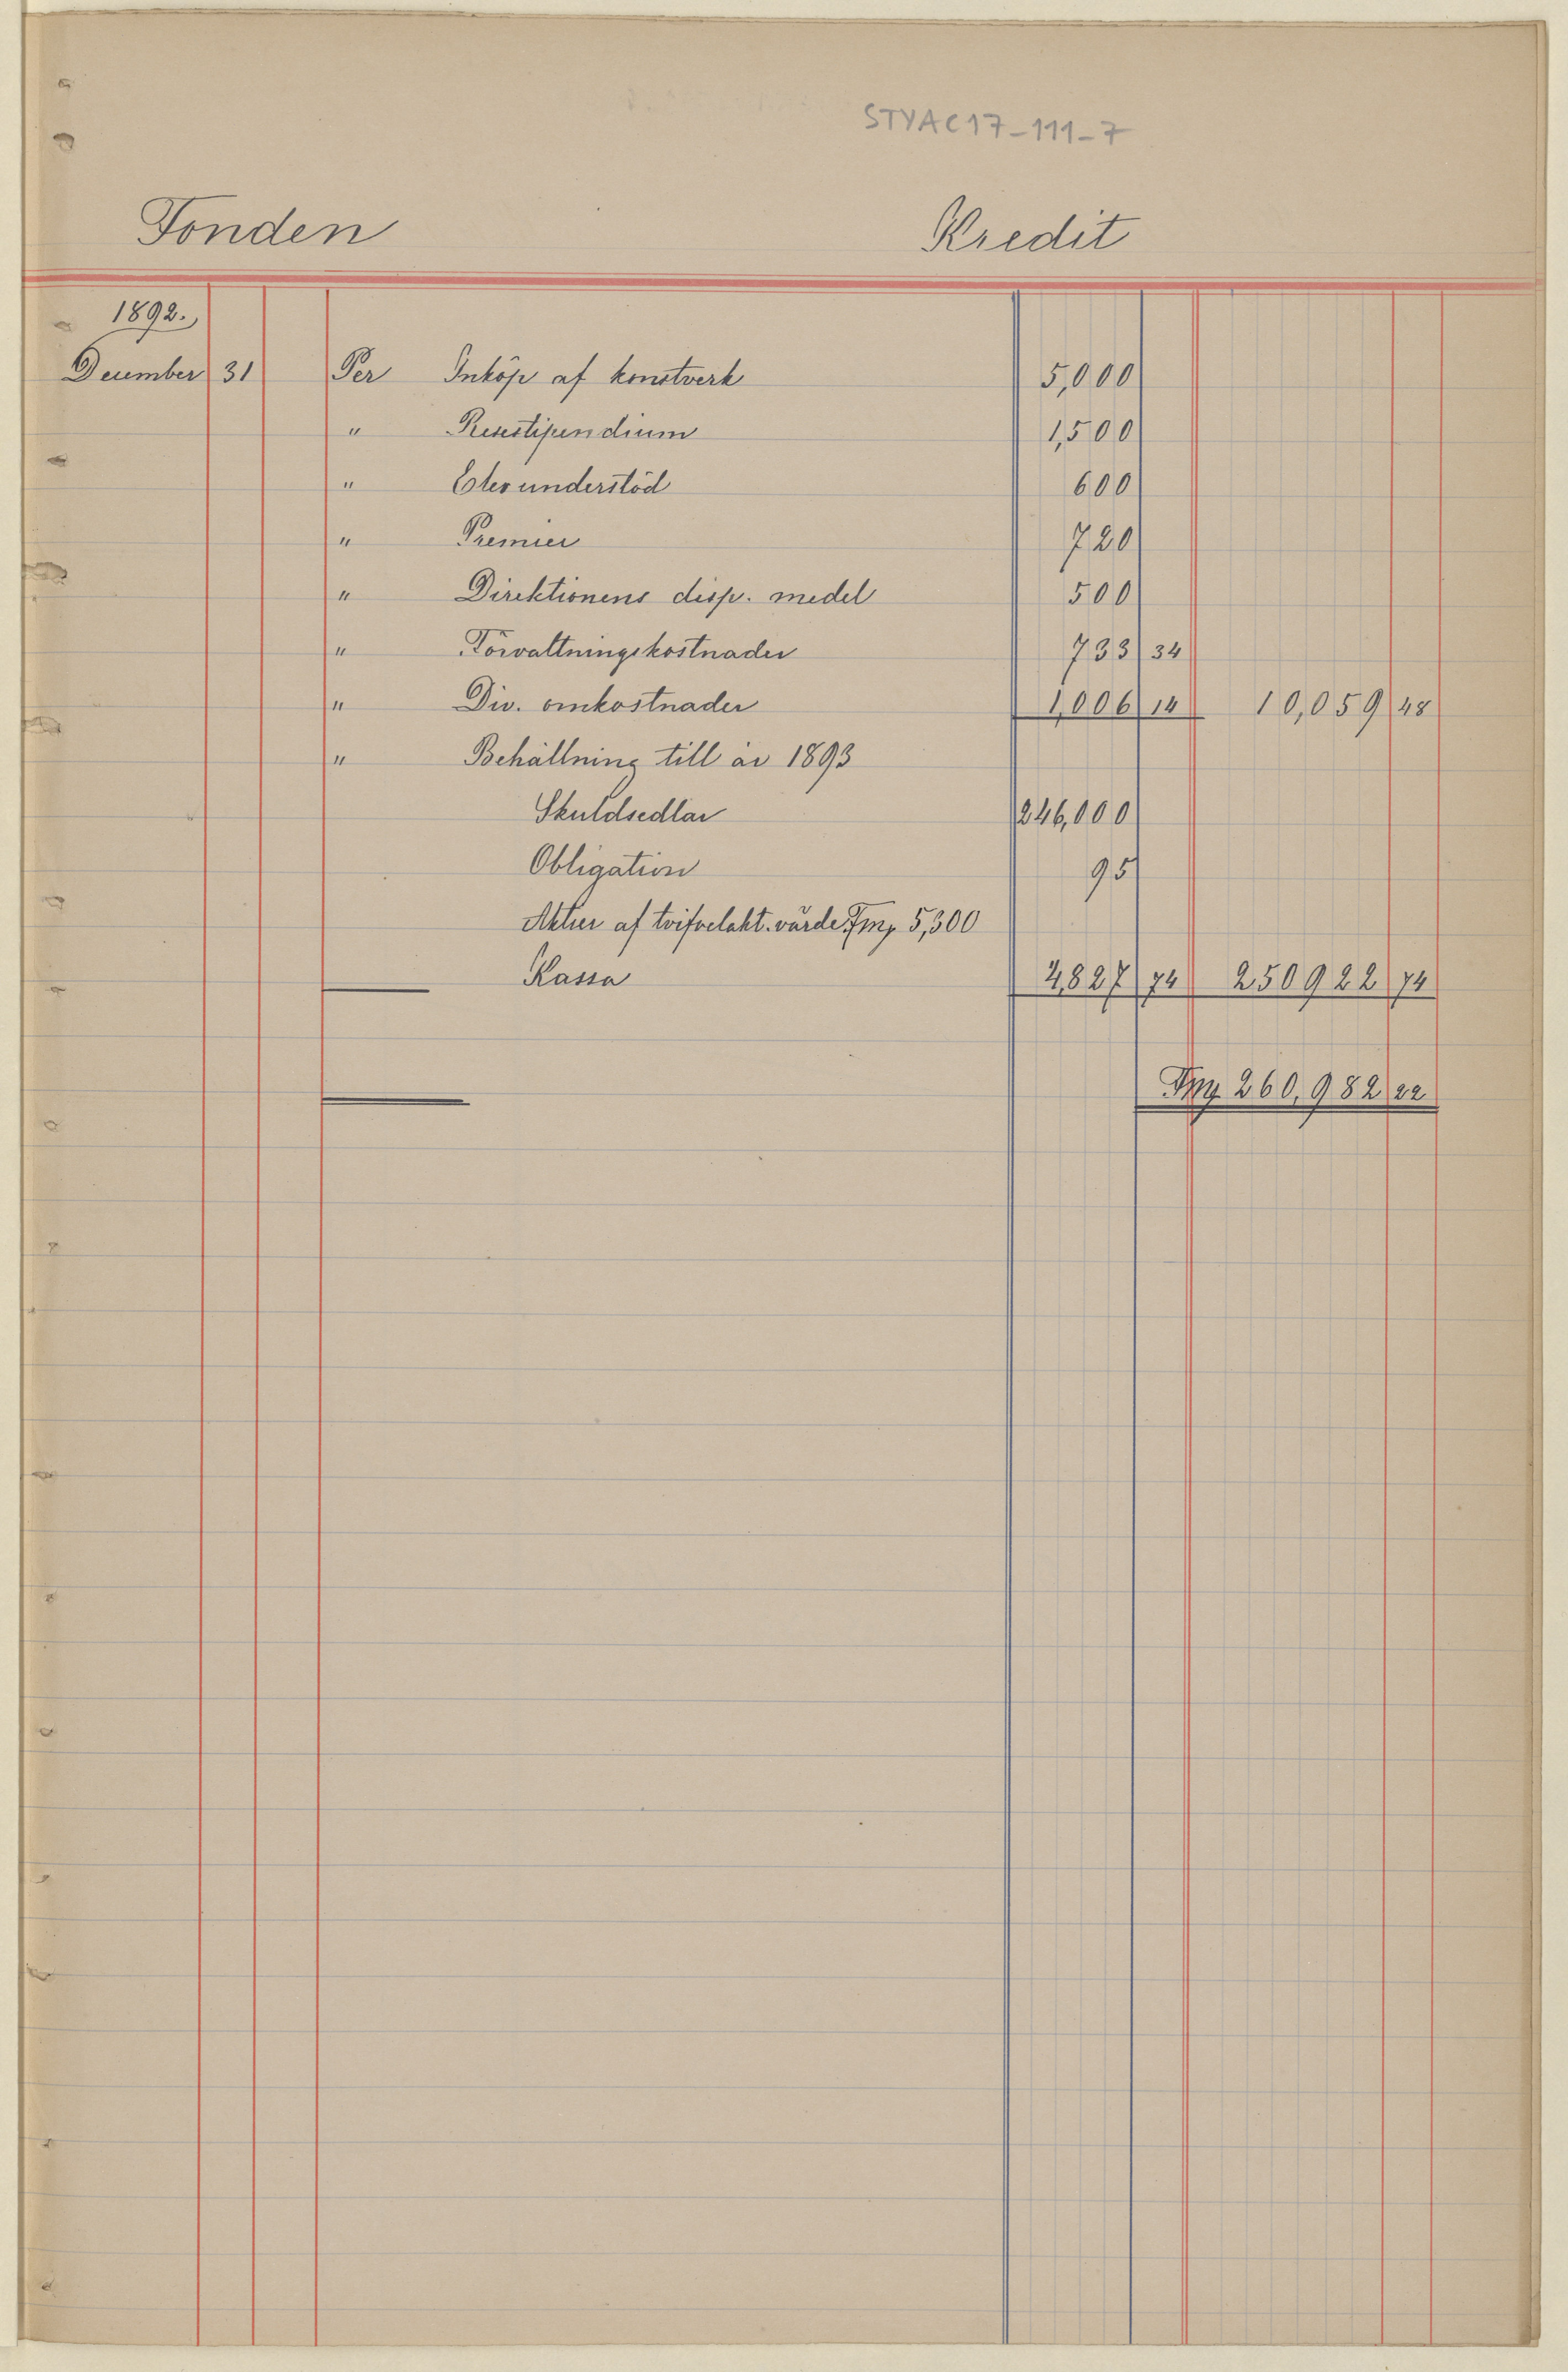 STYAC17-111-7
Fonden Kredit
1892.
December 31 Per Inköp af konstverk 5,000
" Resestipendium 1,500
" Elevunderstöd 600
" Premier 720
" Direktionens disp. medel 500
" Förvaltningskostnader 733 34
" Div. omkostnader 1,006 14 10,059 48
" Behållning till år 1893
Skuldsedlar 246,000
Obligation 95
Aktier af tvifvelakt. värde Fmp 5,300
Kassa 4,827 74 250922 74
Fmp 260,982 22